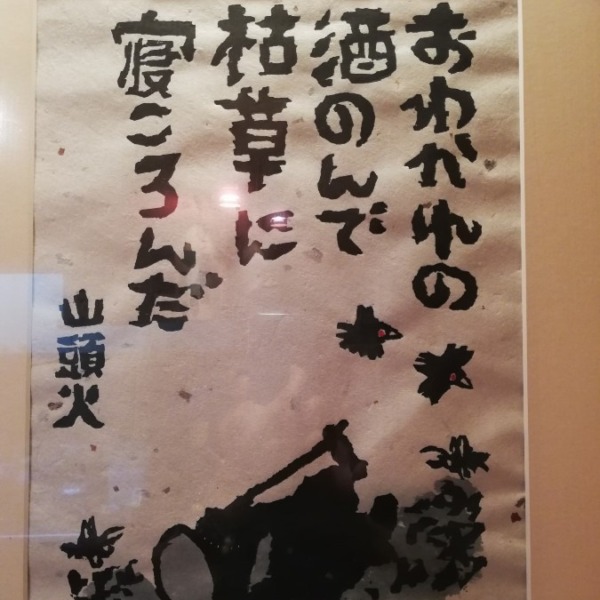 おわかれの
酒のんで
枯草に
寝ころんだ
山頭火